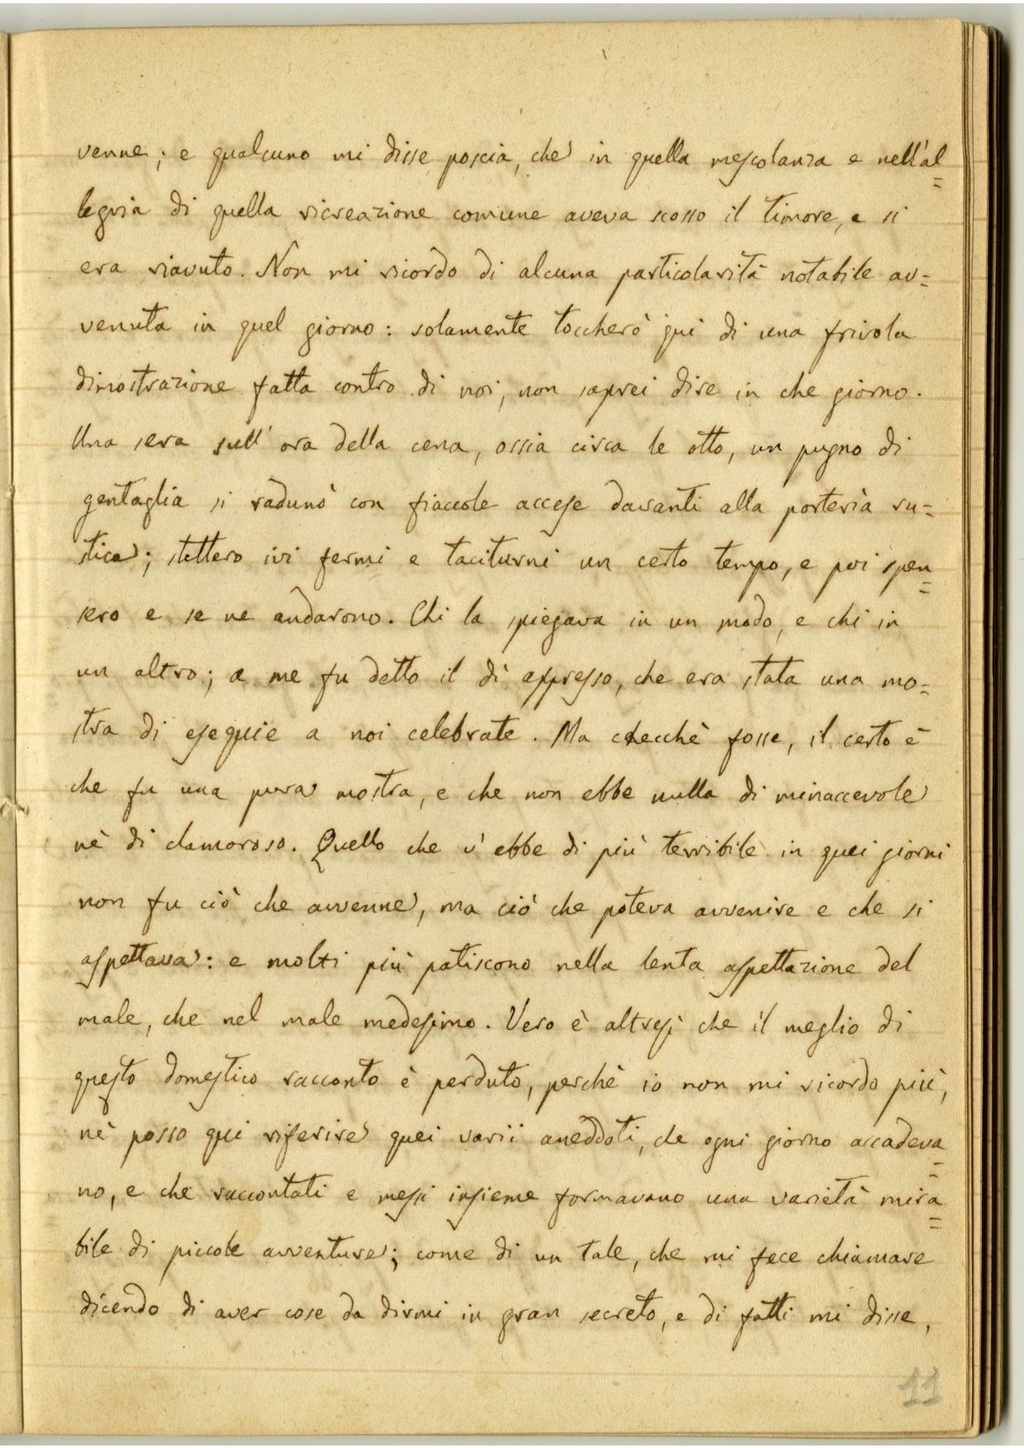 venne; e qualcuno mi disse poscia, che in quella mescolanza e nell'al=
legria di quella ricreazione comune aveva scosso il timore, e si
era riavuto. Non mi ricordo di alcuna particolarità notabile av=
venuta in quel giorno: solamente toccherò qui di una frivola
dimostrazione fatta contro di noi, non saprei dire in che giorno.
Una sera sull'ora della cena, ossia circa le otto, un pugno di
gentaglia si radunò con fiaccole accese davanti alla porteria ru=
stica; stettero ivi fermi e taciturni un certo tempo, e poi spen=
sero e se ne andarono. Chi la spiegava in un modo, e chi in
un altro; a me fu detto il dì appresso, che era stata una mo=
stra di esequie a noi celebrate. Ma checchè fosse, il certo è
che fu una pura mostra, e che non ebbe nulla di minaccevole
nè di clamoroso. Quello che v'ebbe di più terribile in quei giorni
non fu ciò che avvenne, ma ciò che poteva avvenire e che si
aspettava: e molti più patiscono nella lenta aspettazione del
male, che nel male medesimo. Vero è altresì che il meglio di
questo domestico racconto è perduto, perchè io non mi ricordo più,
nè posso qui riferire quei varii aneddoti, che ogni giorno accadeva=
no, e che raccontati e messi insieme formavano una varietà mira=
bile di piccole avventure; come di un tale, che mi fece chiamare
dicendo di aver cose da dirmi in gran secreto, e di fatti mi disse,
11